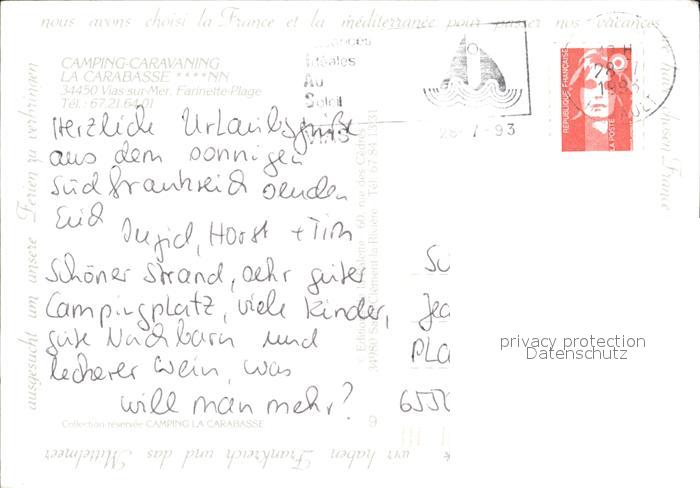 nous avons choisi la France et la méditerranée pour passer nos vacances
CAMPING-CARAVANING
LA CARABASSE ****NN
34450 Vias-sur-Mer. Farinette-Plage
Tél.: 67.21.64.01
Idéales
Au
Soleil
28-7-93
28
1993
RÉPUBLIQUE FRANÇAISE
LA POSTE
Herzliche Urlaubsgrüße
aus dem sonnigen
Südfrankreich senden
Euch
Ingid, Horst + Tim
Schöner Strand, sehr guter
Campingplatz, viele Kinder,
gute Nachbarn und
leckerer Wein, was
will man mehr?
Su
Jea
PLA
6550
privacy protection
Datenschutz
Collection réservée CAMPING LA CARABASSE
9
60, rue des Cèdres
34980 Saint-Clément-la-Rivière Tél. 67 84 13 31
ausgesucht um unsere Ferien zu verbringen
wir haben Frankreich und das Mittelmeer
chosen France